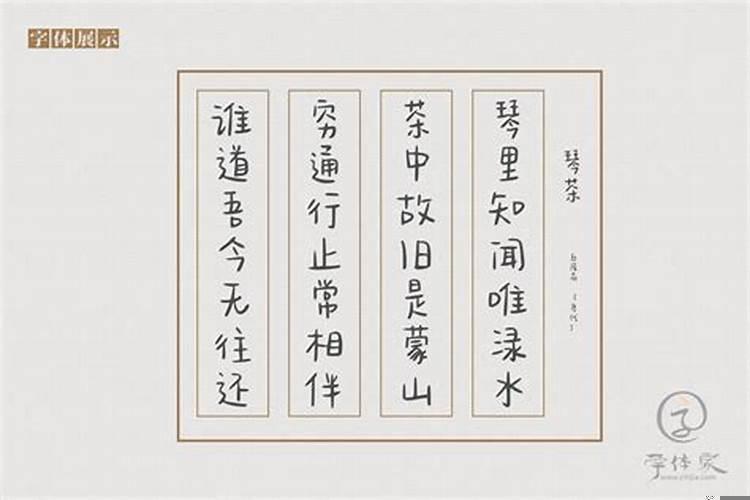 字体展示
琴茶
白居易
琴里知闻唯渌水
茶中故旧是蒙山
穷通行止常相伴
谁道吾今无往还
字体家